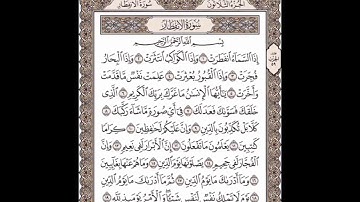 سُورَةُ الِانفِطَارِ
الجُزْءُ الثَّلَاثُونَ
سُورَةُ الانفِطَارِ
بِسْمِ اللَّهِ الرَّحْمَٰنِ الرَّحِيمِ
إِذَا السَّمَاءُ انفَطَرَتْ ۝١ وَإِذَا الْكَوَاكِبُ انتَثَرَتْ ۝٢ وَإِذَا الْبِحَارُ
فُجِّرَتْ ۝٣ وَإِذَا الْقُبُورُ بُعْثِرَتْ ۝٤ عَلِمَتْ نَفْسٌ مَّا قَدَّمَتْ
وَأَخَّرَتْ ۝٥ يَٰأَيُّهَا الْإِنسَٰنُ مَا غَرَّكَ بِرَبِّكَ الْكَرِيمِ ۝٦ الَّذِي
خَلَقَكَ فَسَوَّىٰكَ فَعَدَلَكَ ۝٧ فِي أَيِّ صُورَةٍ مَّا شَاءَ رَكَّبَكَ ۝٨
كَلَّا بَلْ تُكَذِّبُونَ بِالدِّينِ ۝٩ وَإِنَّ عَلَيْكُمْ لَحَٰفِظِينَ ۝١٠ كِرَامًا
كَٰتِبِينَ ۝١١ يَعْلَمُونَ مَا تَفْعَلُونَ ۝١٢ إِنَّ الْأَبْرَارَ لَفِي نَعِيمٍ ۝١٣ وَإِنَّ
الْفُجَّارَ لَفِي جَحِيمٍ ۝١٤ يَصْلَوْنَهَا يَوْمَ الدِّينِ ۝١٥ وَمَا هُمْ عَنْهَا بِغَائِبِينَ
۝١٦ وَمَا أَدْرَىٰكَ مَا يَوْمُ الدِّينِ ۝١٧ ثُمَّ مَا أَدْرَىٰكَ مَا يَوْمُ الدِّينِ
۝١٨ يَوْمَ لَا تَمْلِكُ نَفْسٌ لِّنَفْسٍ شَيْئًا وَالْأَمْرُ يَوْمَئِذٍ لِّلَّهِ ۝١٩